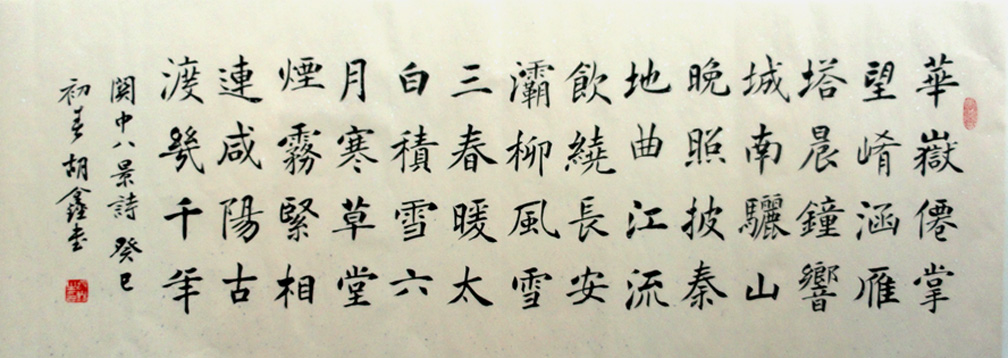 華嶽僊掌
望崤涵雁
塔晨鐘響
城南驪山
晚照披秦
地曲江流
飲繞長安
灞柳風雪
三春暖太
白積雪六
月寒草堂
煙霧緊相
連咸陽古
渡幾千年
關中八景詩 癸巳
初春胡鑫書